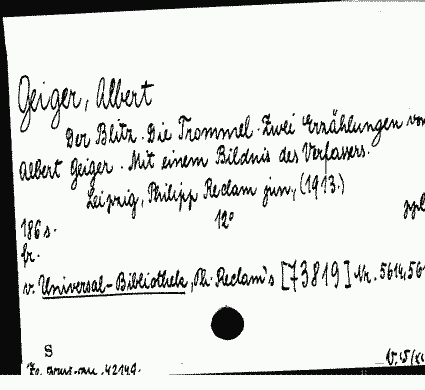 Geiger, Albert
Der Blitz. Die Trommel. Zwei Erzählungen von
Albert Geiger. Mit einem Bildnis des Verfassers.
Leipzig, Philipp Reclam jun., (1913.)
186 s. 12°
fr.
v. Universal-Bibliothek, Ph. Reclam's [73819] Nr. 5614,561
S
42149.